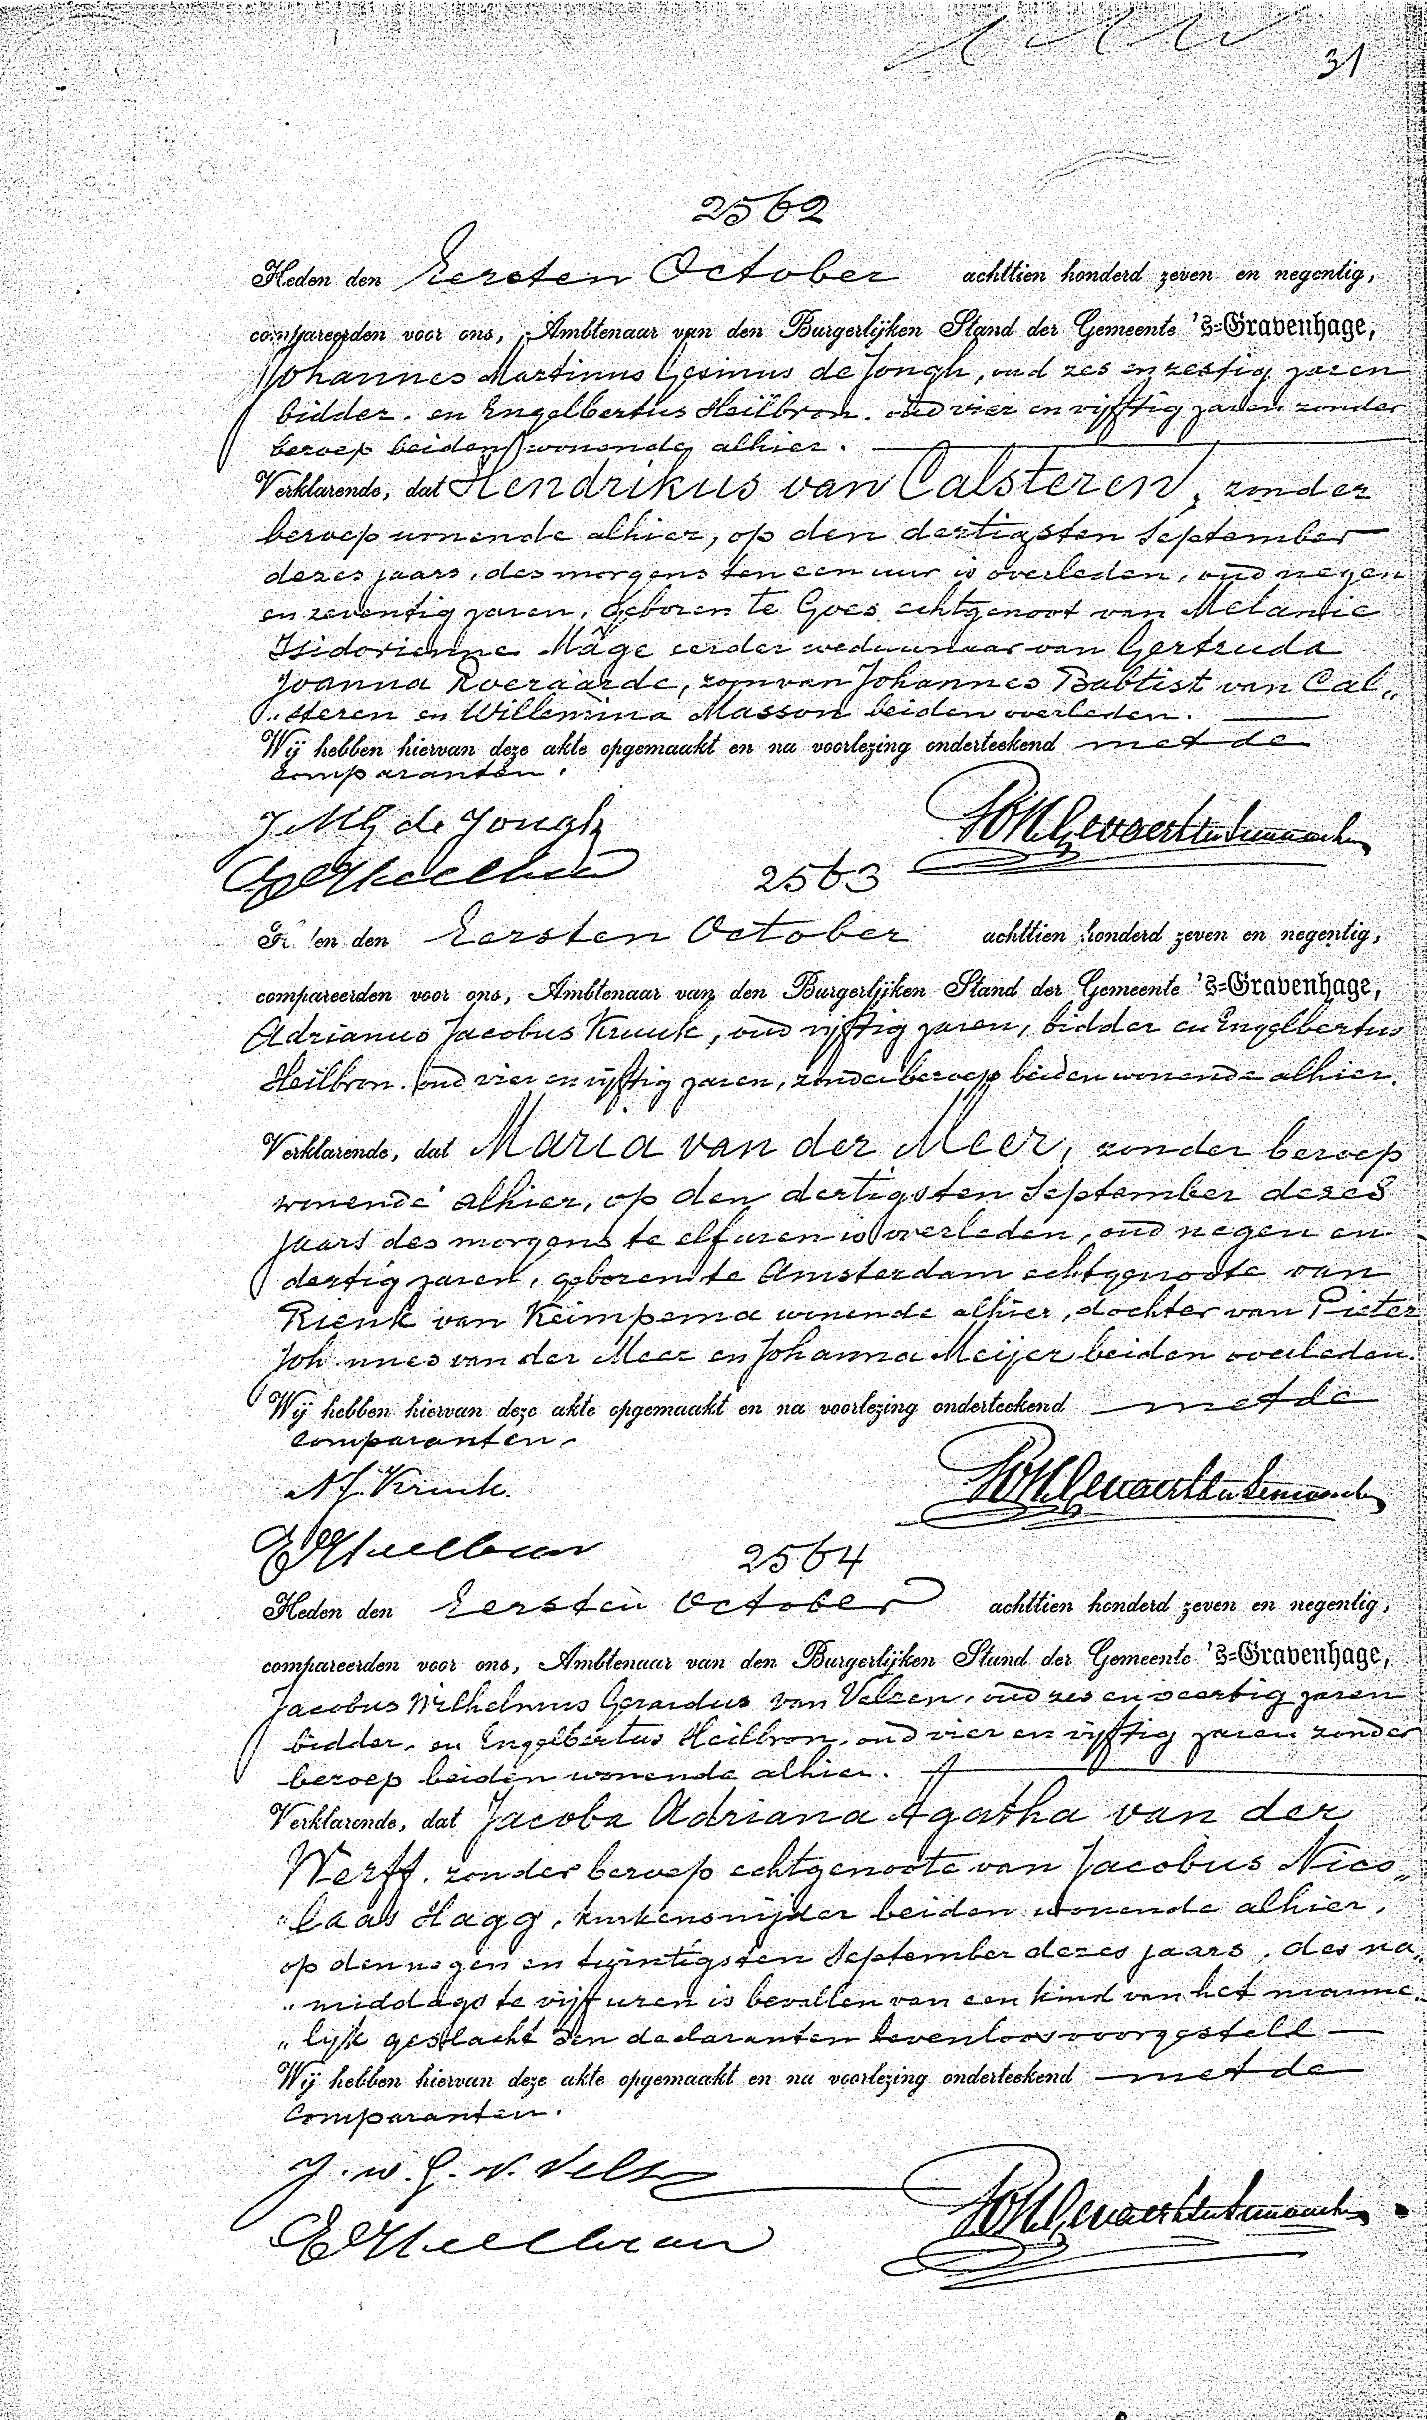 31
2562
Heden den Eersten October achttien honderd zeven en negentig,
compareerden voor ons, Ambtenaar van den Burgerlijken Stand der Gemeente 's-Gravenhage,
Johannes Martinus Gesinus de Jongh, oud zes en zestig jaren
bidder. en Engelbertus Heilbron. oud vier en vijftig jaren zonder
beroep beiden wonende alhier.
Verklarende, dat Hendrikus van Calsteren, zonder
beroep wonende alhier, op den dertigsten September
dezes jaars, des morgens ten een uur is overleden, oud negen
en zeventig jaren, geboren te Goes echtgenoot van Melanie
Isidorienne Mâge eerder weduwnaar van Gertruda
Joanna Roeraarde, zoon van Johannes Babtist van Cal„
„steren en Willemina Masson beiden overleden.
Wij hebben hiervan deze akte opgemaakt en na voorlezing onderteekend met de
comparanten.
J M G de Jongh
2563
den Eersten October achttien honderd zeven en negentig,
compareerden voor ons, Ambtenaar van den Burgerlijken Stand der Gemeente 's-Gravenhage,
Adrianus Jacobus Kruuk, oud vijftig jaren, bidder en Engelbertus
Heilbron. oud vier en vijftig jaren, zonder beroep beiden wonende alhier.
Verklarende, dat Maria van der Meer, zonder beroep
wonende alhier, op den dertigsten September dezes
jaars des morgens te elf uren is overleden, oud negen en
dertig jaren, geboren te Amsterdam echtgenoote van
Rienk van Keimpema wonende alhier, dochter van Pieter
Johannes van der Meer en Johanna Meijer beiden overleden.
Wij hebben hiervan deze akte opgemaakt en na voorlezing onderteekend met de
comparanten.
AJ. Kruuk.
E Heilbron
2564
Heden den Eersten October achttien honderd zeven en negentig,
compareerden voor ons, Ambtenaar van den Burgerlijken Stand der Gemeente 's-Gravenhage,
Jacobus Wilhelmus Gerardus van Velzen, oud zes en veertig jaren
bidder, en Engelbertus Heilbron, oud vier en vijftig jaren zonder
beroep beiden wonende alhier.
Verklarende, dat Jacoba Adriana Agatha van der
Werff. zonder beroep echtgenoote van Jacobus Nico„
„laas Hagg, kurkensnijder beiden wonende alhier,
op den negen en twintigsten September dezes jaars, des na„
„middags te vijf uren is bevallen van een kind van het manne„
„lijk geslacht den declaranten levenloos voorgesteld
Wij hebben hiervan deze akte opgemaakt en na voorlezing onderteekend met de
Comparanten.
J. W. G. v. Velzen
E Heilbron